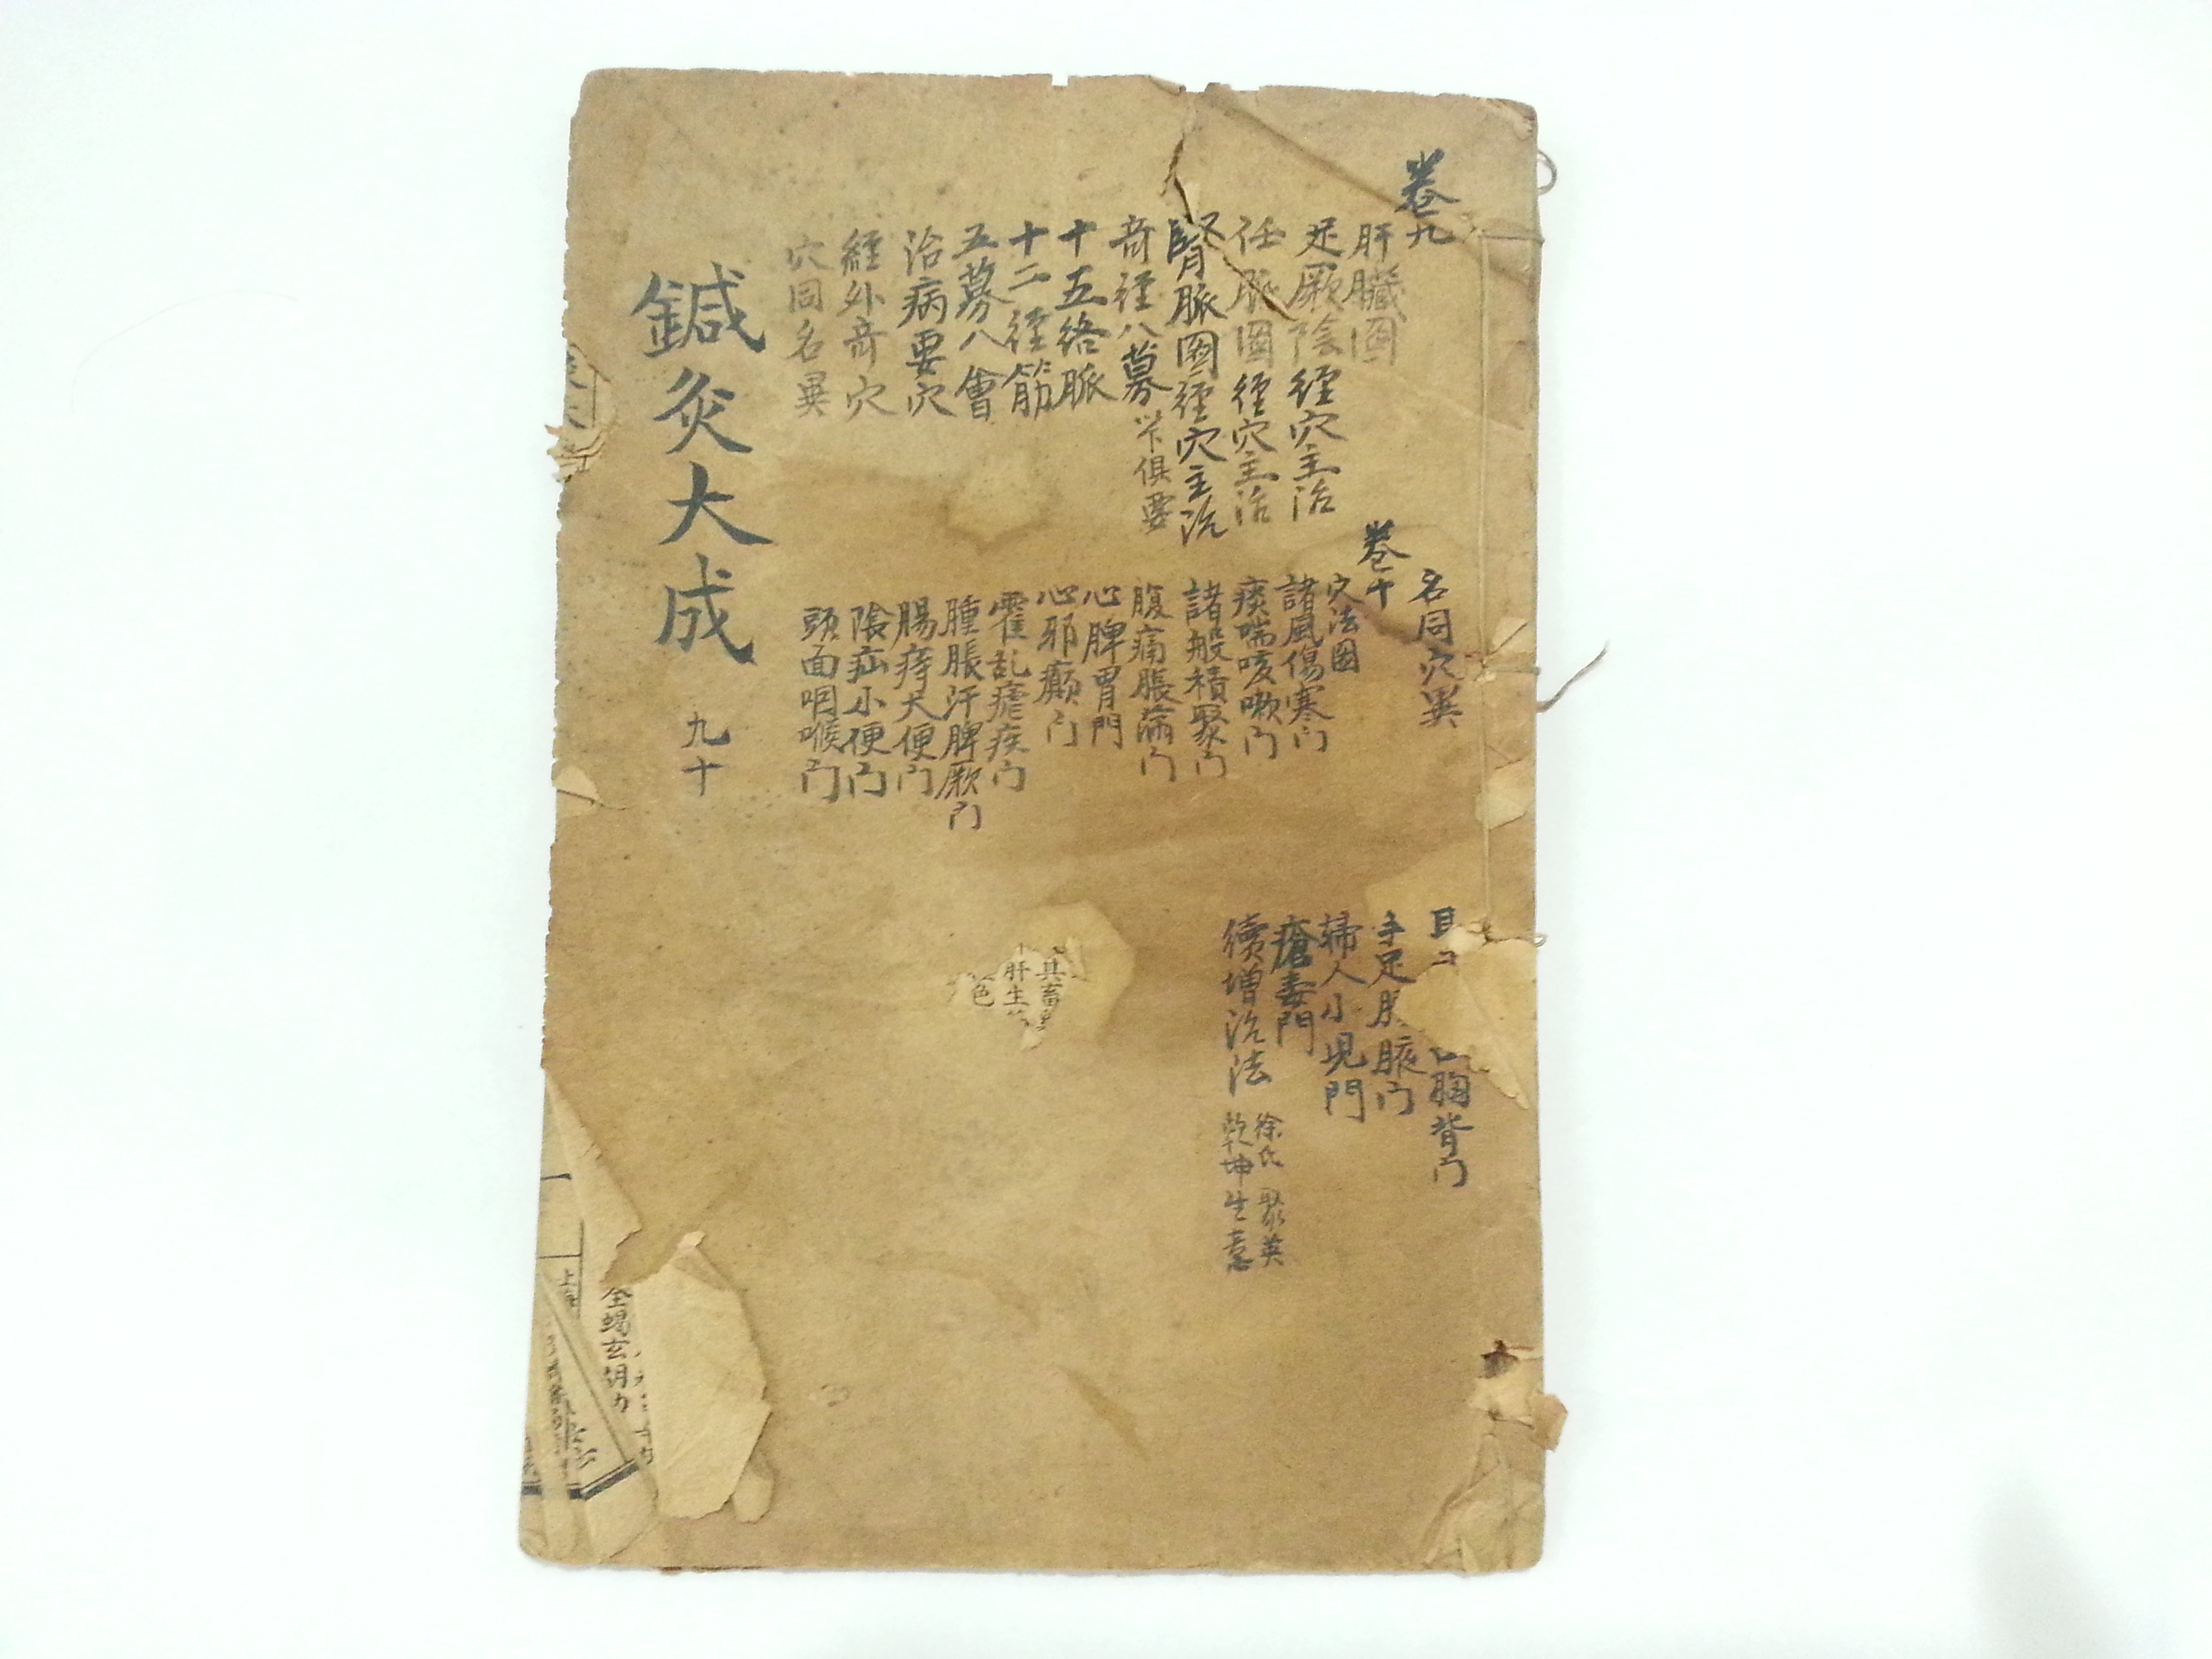 卷九
肝臟圖
足厥陰經穴主治
任脈圖經穴主治
腎脈圖經穴主治
奇經八募以下俱要
十五絡脈
十二經筋
五募八會
治病要穴
經外奇穴
穴同名異
名同穴異
卷十
穴法圖
諸風傷寒门
痰喘咳嗽门
諸般積聚门
腹痛脹滿门
心脾胃門
心邪癲门
霍乱瘧疾门
腫脹汗脾厥门
腸痔大便门
陰疝小便门
頭面咽喉门
耳
胸背门
手足
腋门
婦人小児門
瘡毒門
續增治法
徐氏 聚英
乾坤生意
鍼灸大成
九十
具畜
肝生
色
上海
全蝎玄胡力